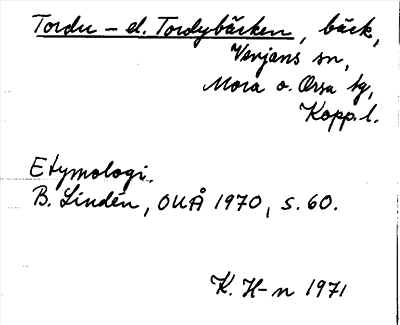 Tordu- el. Tordybäcken, bäck,
Venjans sn,
Mora o. Orsa tg,
Kopp. l.
Etymologi.
B. Lindén, OUÅ 1970, s. 60.
K. H-n 1971